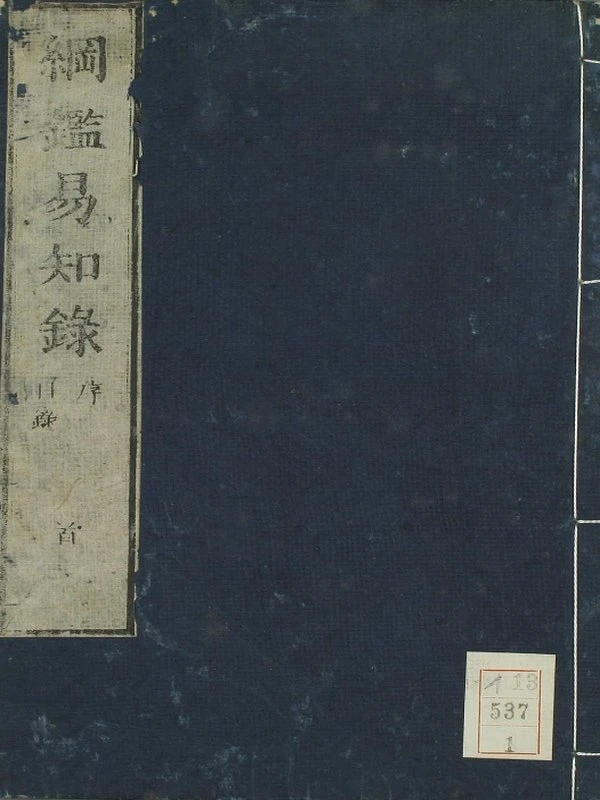 綱鑑易知錄
序
目錄
首
イ 13
537
1